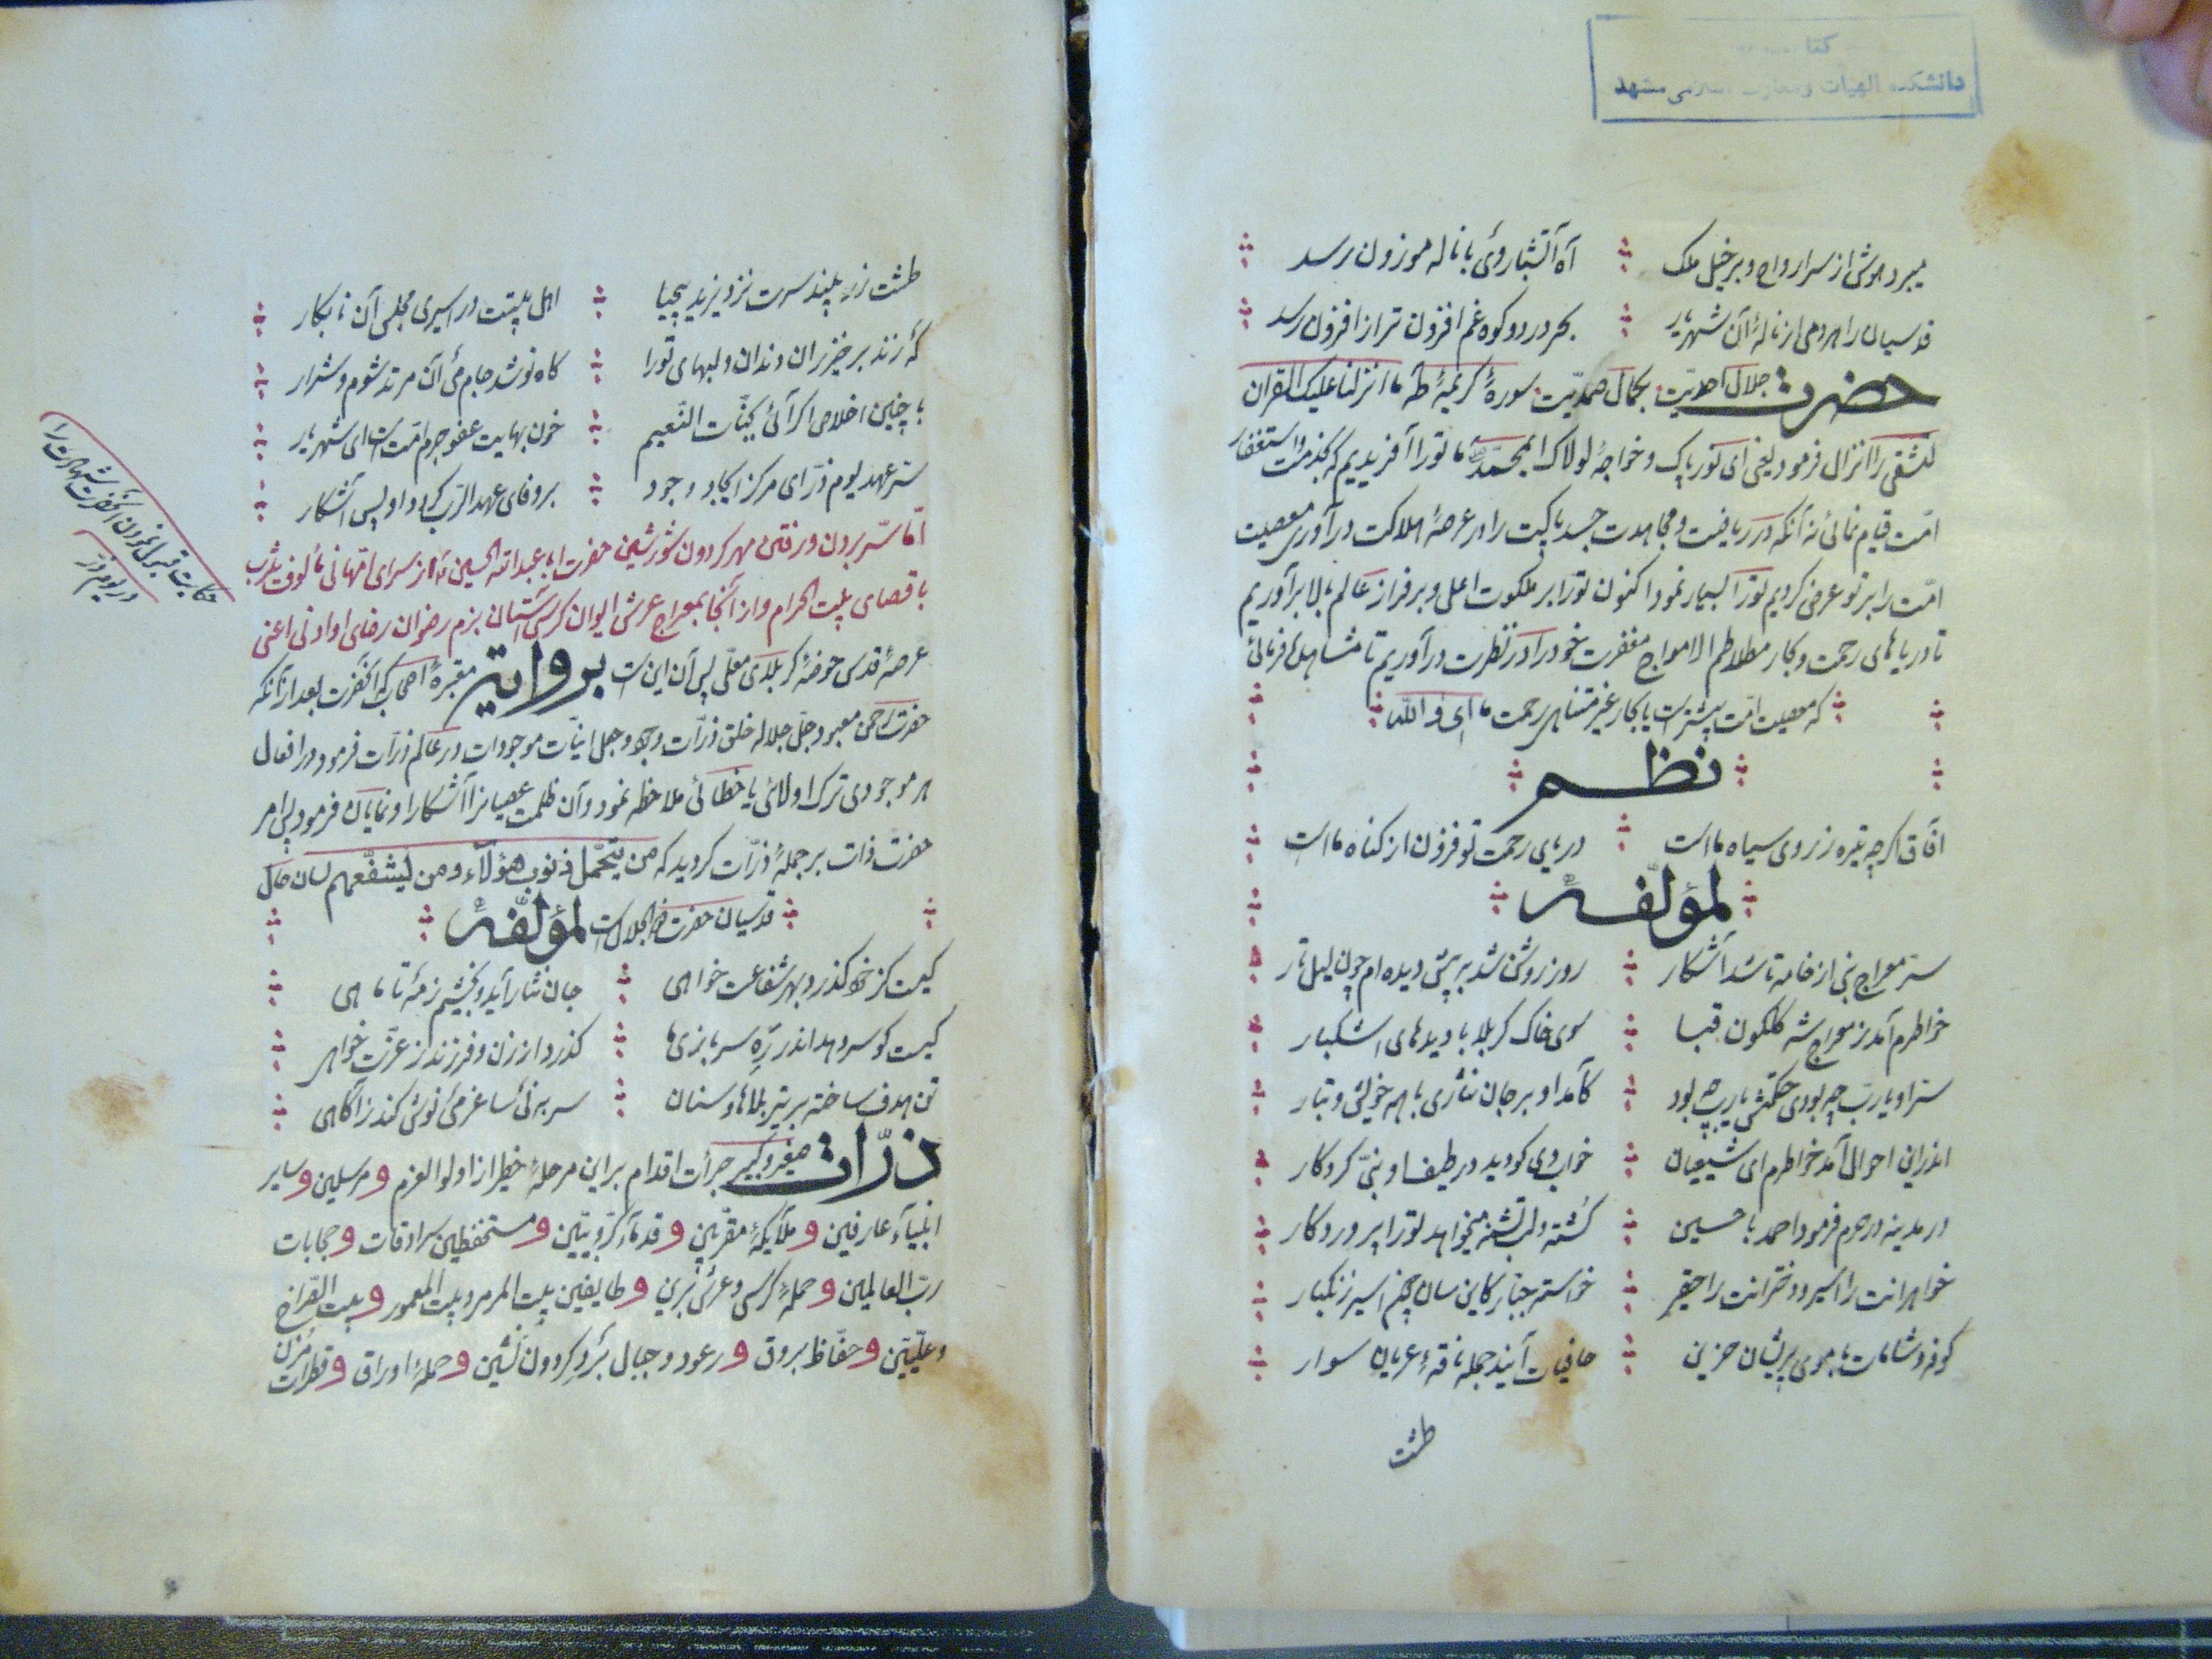 دانشکده الهیات و معارف اسلامی مشهد
میبرد هوش از سر ارواح و بر خیل ملک آه آتشبار وی با ناله موزون رسد
قدسیان را هر دمی از ناله آن شهریار بحر درد و کوه غم افزون تر از افزون رسد
حضرت جلال احدیت بجمال صمدیت سوره کریمه طه ما انزلنا علیک القران
لتشقی را انزال فرمود یعنی ای نور پاک و خواجه لولاک ای محمد ما تو را آفریدیم که بخدمت و استغفار
امت قیام نمائی نه آنکه در ریاضت و مجاهدت جسد پاکت را در عرصه هلاکت در آوری معصیت
امت را بر تو عرض کردیم تو را بسیار نمود اکنون تو را بر ملکوت اعلی و بر فراز عالم بالا بر آوریم
تا دریاهای رحمت و بحار متلاطم الامواج مغفرت خود را در نظرت در آوریم تا مشاهده فرمائی
که معصیت امت بیشتر است یا بحار غیر متناهی رحمت ما ای والله
نظم
آفاق اگر چه تیره ز روی سیاه ما است دریای رحمت تو فزون از گناه ما است
لمؤلفه
سر معراج نبی از خامه تا شد آشکار روز روشن شد به پیش دیده ام چون لیل تار
خاطرم آمد ز معراج شه گلگون قبا سوی خاک کربلا با دیدهای اشکبار
سر او یا رب چه بودی حکمتش یا رب چه بود کآمد او بر جان نثاری با همه خویش و تبار
اندر این احوال آمد خاطرم ای شیعیان خواب وی کو دید در طیف او بنی کردگار
در مدینه در حرم فرمود احمد با حسین کشته و لب تشنه میخواهد تو را پروردگار
خواهرانت را اسیر و دخترانت را حقیر خواسته جبار کاین سان چون اسیر زنگبار
کوفه و شامات با موی پریشان حزین حافیات آیند جمله ناقه عریان سوار
طشت
طشت زر بیند سرت نزد یزید بیحیا اهل بیتت در اسیری مجلس آن نابکار
گه زند بر خیزران دندان و لبهای تو را گاه نوشد جام می آن مرتد شوم و شرار
با چنین اخلاص اگر آئی بجنات النعیم خون بهایت عفو جرم امت است ای شهریار
سر عهد یوم ذر ای مرکز ایجاد وجود بر وفای عهد الرب کرد او پس آشکار
اما سر بردن و رفتن مهر گردون شورشین حضرت ابا عبدالله الحسین از سرای ام هانی مألوف یثرب
باقصای بیت الحرام و از آنجا بمعراج عرش ایوان کرسی آستان بزم رضوان رضای او ادنی اعنی
عرصه قدس حوضه کربلای معلی پس آن این است بروایتی مقبره اصحاب آنحضرت بعد از آنکه
حضرت احمد معبود جل جلاله خلق ذرات وجود و جعل انیات موجودات در عالم ذرات فرمود در افعال
هر موجودی ترک اولائی یا خطائی ملاحظه نمود و آن ظلمت عصیانرا آشکار او نمایان فرمود پس امر
حضرت ذات بر جمله ذرات گردید که من یتحمل ذنوب هؤلاء و من یشفعهم لسان حال
قدسیان حضرت ذو الجلال است لمؤلفه
کیست کز خود گذرد بهر شفاعت خواهی جان نثار آید و بخشیم ز مه تا ماهی
کیست کو سر دهد اندر ره سربازیها گذرد از زن و فرزند ز عزت خواهی
تن هدف ساخته بر تیر بلاها و سنان سر به نی ساغر می نوش کند ز آگاهی
ذرات صغیر و کبیر جرأت اقدام بر این مرحله خطیر از اولوالعزم و مرسلین و سایر
انبیاء عارفین و ملایکه مقربین و قدماء کروبیین و مستحفظین سرادقات و حجابات
رب العالمین و حمله کرسی و عرش برین و طایفین بیت المرمر و بیت المعمور و بیت الضراح
و علیین و حفاظ بروق و رعود و جبال برد گردون نشین و حمله اوراق و قطرات مزن
حکایت قبول نمودن آنحضرت شهادت را
در یوم ذر